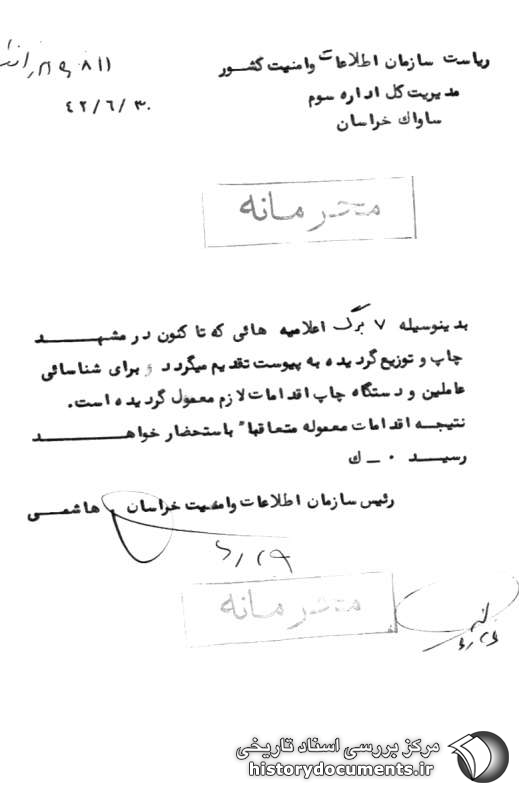 ریاست سازمان اطلاعات وامنیت کشور
مدیریت کل اداره سوم
ساواک خراسان
۸۱۱
۴۲/۶/۳۰
محرمانه
بدینوسیله ۷ برگ اعلامیه هائی که تاکنون در مشهد
چاپ و توزیع گردیده به پیوست تقدیم میگردد و برای شناسائی
عاملین و دستگاه چاپ اقدامات لازم معمول گردیده است.
نتیجه اقدامات معموله متعاقباً باستحضار خواهد
رسید ۰ ـ ك
رئیس سازمان اطلاعات وامنیت خراسان . هاشمی
۶/۲۹
محرمانه
۶/۲۶
مرکز بررسی اسناد تاریخی
historydocuments.ir